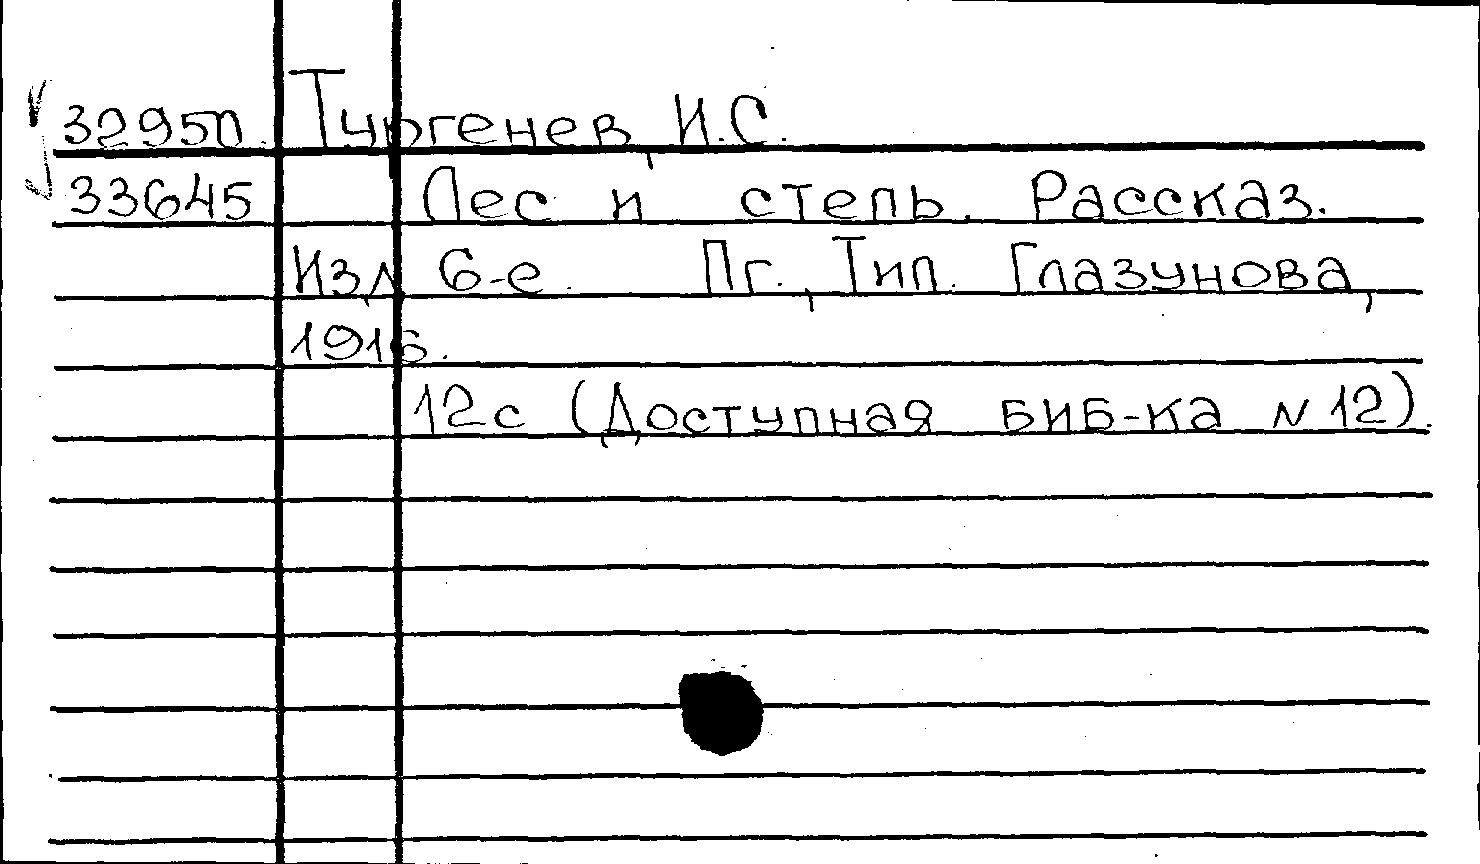 32950. Тургенев, И.С.
33645 Лес и степь. Рассказ.
Изд 6-е. Пг., Тип. Глазунова,
1916.
12с (Доступная биб-ка N 12).